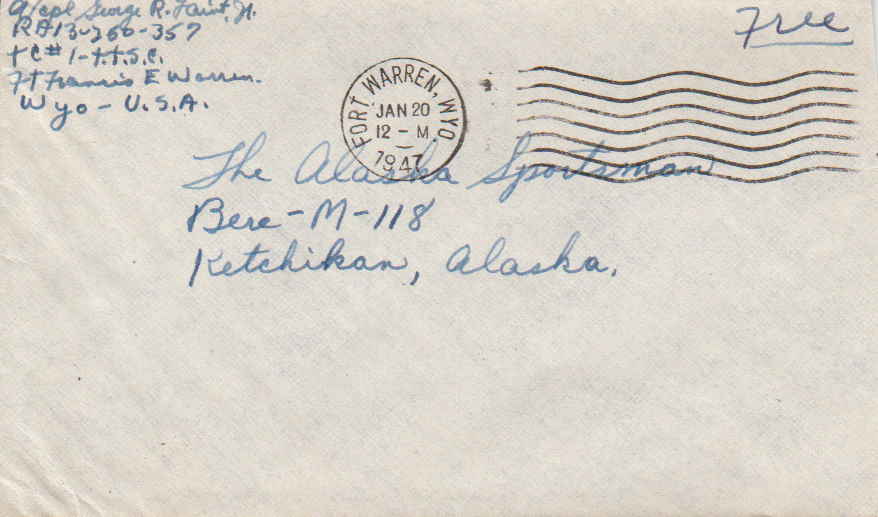 A/cpl George R. Faint, Jr.
RA13-260-357
TC#1-T.T.S.C.
Ft Francis E Warren.
Wyo-U.S.A.
Free
FORT WARREN, WYO
JAN 20
12-M
1947
The Alaska Sportsman
Bere-M-118
Ketchikan, Alaska.